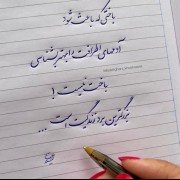 باختی که باعث شود
آدمهای اطرافت را بهتر بشناسی
باخت نیست !
بزرگترین برد زندگیت است ...